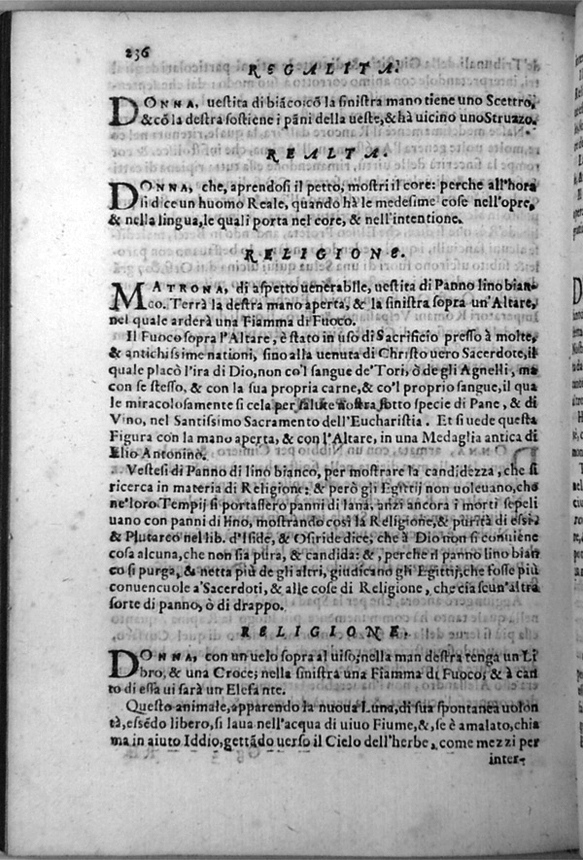 236
REGALITA.
DONNA, uestita di biãco: cõ la sinistra mano tiene uno Scettro,
& cõ la destra sostiene i pãni della ueste, & hà uicino uno Struzzo.
REALTA.
DONNA, che, aprendosi il petto, mostri il core: perche all'hora
si dice un huomo Reale, quando hà le medesime cose nell'opre,
& nella lingua, le quali porta nel core, & nell'intentione.
RELIGIONE.
MATRONA, di aspetto uenerabile, uestita di Panno lino bian-
co. Terrà la destra mano aperta, & la sinistra sopra un'Altare,
nel quale arderà una Fiamma di Fuoco.
Il Fuoco sopra l'Altare, è stato in uso di Sacrificio presso à molte,
& antichissime nationi, sino alla uenuta di Christo uero Sacerdote, il
quale placò l'ira di Dio, non co'l sangue de'Tori, ò de gli Agnelli, ma
con se stesso, & con la sua propria carne, & co'l proprio sangue, il qua
le miracolosamente si cela per salute nostra sotto specie di Pane, & di
Vino, nel Santissimo Sacramento dell'Eucharistia. Et si uede questa
Figura con la mano aperta, & con l'Altare, in una Medaglia antica di
Elio Antonino.
Vestesi di Panno di lino bianco, per mostrare la candidezza, che si
ricerca in materia di Religione: & però gli Egittij non uoleuano, che
ne'loro Tempij si portassero panni di lana, anzi ancora i morti sepeli
uano con panni di lino, mostrando così la Religione, & purità di essi:
& Plutarco nel lib. d'Iside, & Osiride dice; che à Dio non si conuiene
cosa alcuna, che non sia pura, & candida: &, perche il panno lino bian
co si purga, & netta più de gli altri, giudicano gli Egittij, che fosse più
conueneuole a'Sacerdoti, & alle cose di Religione, che ciascun'altra
sorte di panno, ò di drappo.
RELIGIONE.
DONNA, con un uelo sopra al uiso; nella man destra tenga un Li
bro, & una Croce; nella sinistra una Fiamma di Fuoco; & à can
to di essa ui sarà un Elefante.
Questo animale, apparendo la nuoua Luna, di sua spontanea uolon
tà, essẽdo libero, si laua nell'acqua di uiuo Fiume, &, se è amalato, chia
ma in aiuto Iddio, gettãdo uerso il Cielo dell'herbe, come mezzi per
inter-